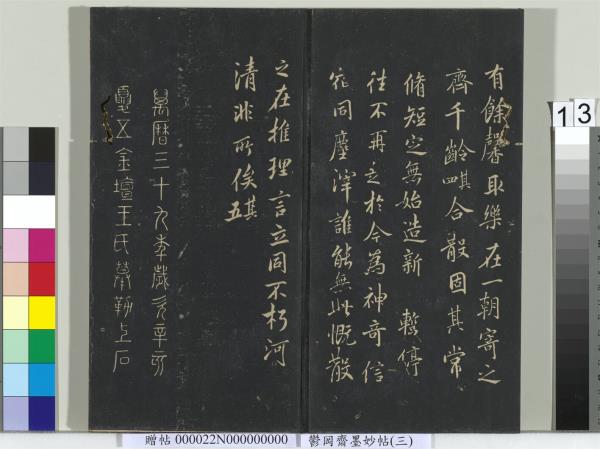 有餘馨取樂在一朝寄之
齊千齡 其四 合散固其常
脩短定無始造新 暫停
往不再起於今為神奇信
宿同塵滓誰能無此慨散
之在推理言立同不朽河
清非所俟 其五
萬曆三十九年歲次辛亥
夏五金壇王氏摹勒上石
贈帖 000022N000000000 鬱岡齋墨妙帖(三)
13